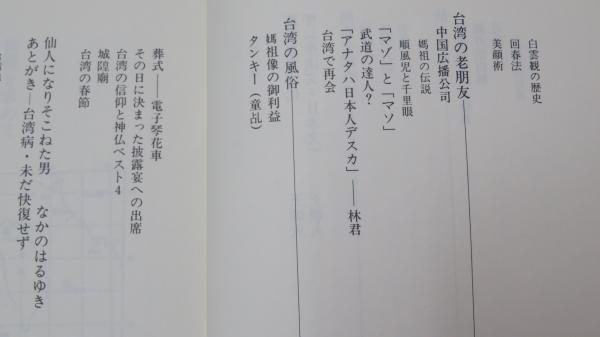 白雲観の歴史
回春法
美顔術
台湾の老朋友
中国広播公司
媽祖の伝説
順風児と千里眼
「マゾ」と「マソ」
武道の達人？
「アナタハ日本人デスカ」――林君
台湾で再会
台湾の風俗
媽祖像の御利益
タンキー（童乩）
葬式――電子琴花車
その日に決まった披露宴への出席
台湾の信仰と神仏ベスト4
城隍廟
台湾の春節
仙人になりそこねた男　なかのはるゆき
あとがき―台湾病・未だ快復せず